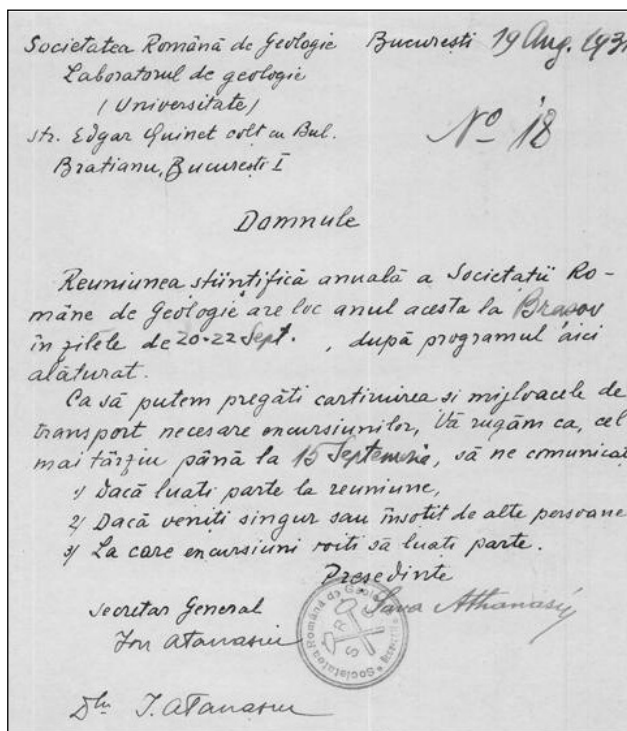 Societatea Română de Geologie București 19 Aug. 193
Laboratorul de geologie
/ Universitate /
str. Edgar Quinet colt cu Bul.
Bratianu, București I
No 18
Domnule
Reuniunea stiintifică anuală a Societatii Ro-
mâne de Geologie are loc anul acesta la Brasov
în zilele de 20-22 Sept. , după programul aici
alăturat.
Ca să putem pregăti cartiruirea si mijloacele de
transport necesare excursiunilor, Vă rugăm ca, cel
mai târziu până la 15 Septemvrie, să ne comunicat
1) Dacă luati parte la reuniune,
2) Dacă veniti singur sau însotit de alte persoane
3) La care excursiuni voiti să luati parte.
Presedinte
Secretar General Sava Athanasiu
Ion Atanasiu
Societatea Română de Geologie
S R G
Dlui I. Atanasiu